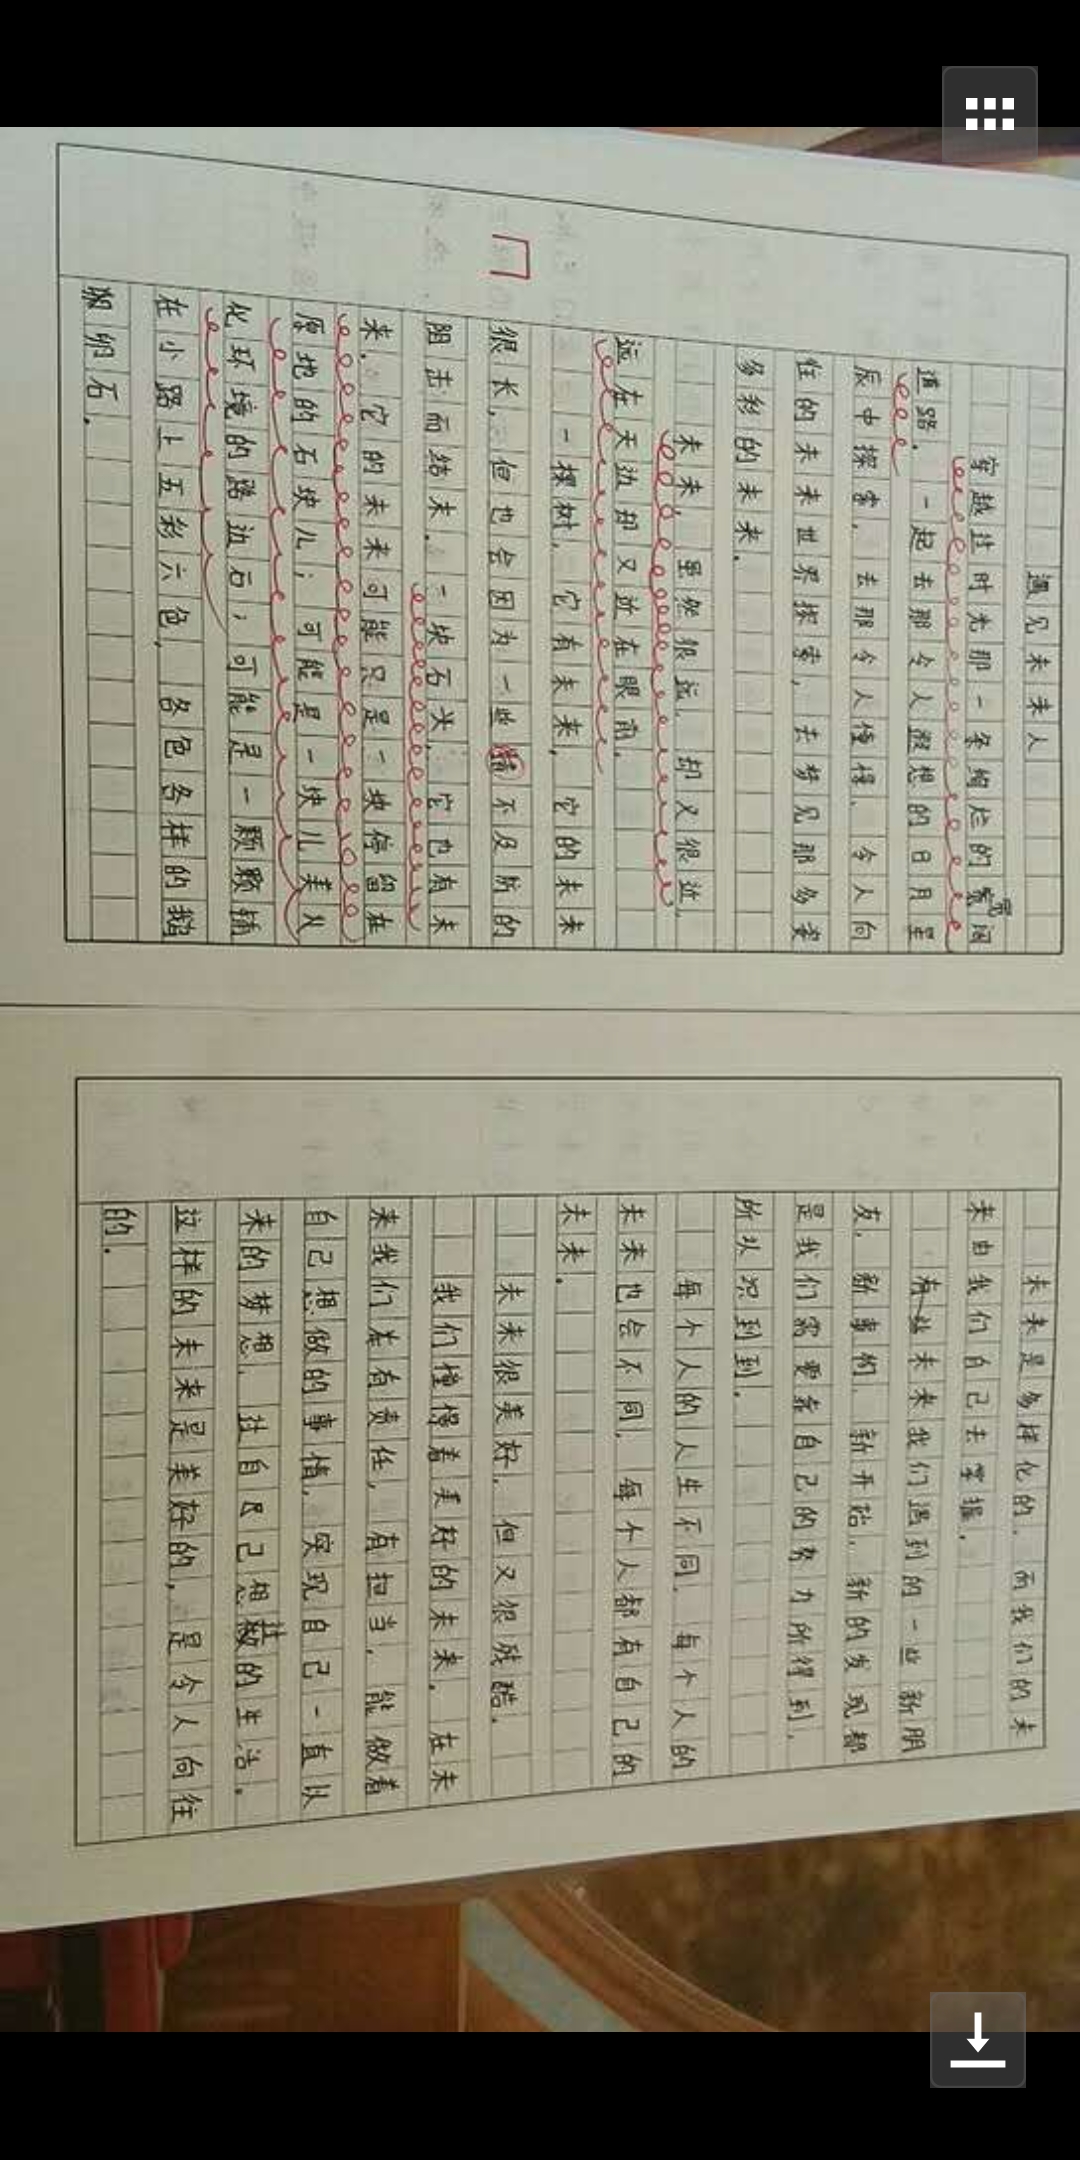 遇见未来人
穿越过时光那一条绚烂的宽阔
道路。一起去那令人遐想的日月星
辰中探索，去那令人憧憬、令人向
往的未来世界探索，去梦见那多变
多彩的未来。
未来，虽然很远，却又很近，
远在天边却又近在眼前。
一棵树，它有未来，它的未来
很长，但也会因为一些不及防的
阻击而结末。一块石头，它也有未
来，它的未来可能只是一块停留在
原地的石块儿；可能是一块儿美化
化环境的路边石；可能是一颗颗铺
在小路上五彩六色，各色各样的鹅
卵石。
未来是多样化的，而我们的未
来由我们自己去掌握。
未来我们遇到的一些新朋
友，新事物，新开始，新的发现都
是我们需要在自己的努力所得到，
所认识到到。
每个人的人生不同，每个人的
未来也会不同，每个人都有自己的
未来。
未来很美好，但又很残酷。
我们憧憬着美好的未来，在未
来我们有责任，有担当，能做着
自己想做的事情，实现自己一直以
来的梦想，过自己想过的生活。
这样的未来是美好的，是令人向往
的。